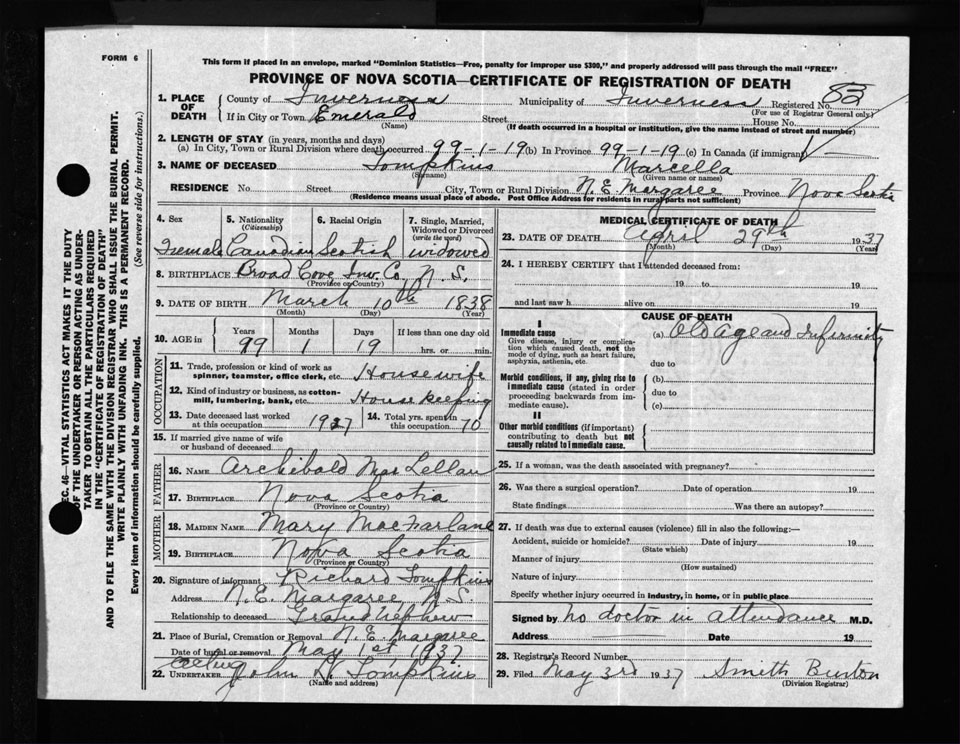 FORM 6
This form if placed in an envelope, marked "Dominion Statistics—Free, penalty for improper use $300," and properly addressed will pass through the mail "FREE"
PROVINCE OF NOVA SCOTIA—CERTIFICATE OF REGISTRATION OF DEATH
SEC. 46—VITAL STATISTICS ACT MAKES IT THE DUTY
OF THE UNDERTAKER OR PERSON ACTING AS UNDER-
TAKER TO OBTAIN ALL THE PARTICULARS REQUIRED
IN THE "CERTIFICATE OF REGISTRATION OF DEATH"
AND TO FILE THE SAME WITH THE DIVISION REGISTRAR WHO SHALL ISSUE THE BURIAL PERMIT.
WRITE PLAINLY WITH UNFADING INK. THIS IS A PERMANENT RECORD.
Every item of information should be carefully supplied. (See reverse side for instructions.)
1. PLACE OF DEATH County of Inverness Municipality of Inverness Registered No. 83
(For use of Registrar General only)
If in City or Town Emerald Street House No.
(Name) (If death occurred in a hospital or institution, give the name instead of street and number)
2. LENGTH OF STAY (in years, months and days)
(a) In City, Town or Rural Division where death occurred 99-1-19 (b) In Province 99-1-19 (c) In Canada (if immigrant)
3. NAME OF DECEASED Tompkins Marcella
(Surname) (Given name or names)
RESIDENCE No. Street City, Town or Rural Division N. E. Margaree Province Nova Scotia
(Residence means usual place of abode. Post Office Address for residents in rural parts not sufficient)
4. Sex
Female
5. Nationality
(Citizenship)
Canadian
6. Racial Origin
Scotish
7. Single, Married,
Widowed or Divorced
(write the word)
widowed
8. BIRTHPLACE Broad Cove Inv. Co. N. S.
(Province or Country)
9. DATE OF BIRTH March 10th 1838
(Month) (Day) (Year)
10. AGE in
Years Months Days If less than one day old
99 1 19 hrs. or min.
OCCUPATION
11. Trade, profession or kind of work as
spinner, teamster, office clerk, etc. Housewife
12. Kind of industry or business, as cotton-
mill, lumbering, bank, etc. House keeping
13. Date deceased last worked
at this occupation 1927
14. Total yrs. spent in
this occupation 70
15. If married give name of wife
or husband of deceased
FATHER
16. NAME Archibald MacLellan
17. BIRTHPLACE Nova Scotia
(Province or Country)
MOTHER
18. MAIDEN NAME Mary MacFarlane
19. BIRTHPLACE Nova Scotia
(Province or Country)
20. Signature of informant Richard Tompkins
Address N. E. Margaree, N. S.
Relationship to deceased Grand nephew
21. Place of Burial, Cremation or Removal N. E. Margaree
Date of burial or removal May 1st 1937
Acting
22. UNDERTAKER John H. Tompkins
(Name and address)
MEDICAL CERTIFICATE OF DEATH
23. DATE OF DEATH April 29th 1937
(Month) (Day) (Year)
24. I HEREBY CERTIFY that I attended deceased from:
19 to 19
and last saw h alive on 19
CAUSE OF DEATH
I
Immediate cause
Give disease, injury or complica-
tion which caused death, not the
mode of dying, such as heart failure,
asphyxia, asthenia, etc.
(a) Old Age and Infirmity
due to
Morbid conditions, if any, giving rise to
immediate cause (stated in order
proceeding backwards from im-
mediate cause).
(b)
due to
(c)
II
Other morbid conditions (if important)
contributing to death but not
causally related to immediate cause.
25. If a woman, was the death associated with pregnancy?
26. Was there a surgical operation? Date of operation 19
State findings Was there an autopsy?
27. If death was due to external causes (violence) fill in also the following:—
Accident, suicide or homicide? Date of injury 19
(State which)
Manner of injury
(How sustained)
Nature of injury
Specify whether injury occurred in industry, in home, or in public place
Signed by No doctor in attendance M.D.
Address Date 19
28. Registrar's Record Number
29. Filed May 3rd 1937 Smith Burton
(Division Registrar)